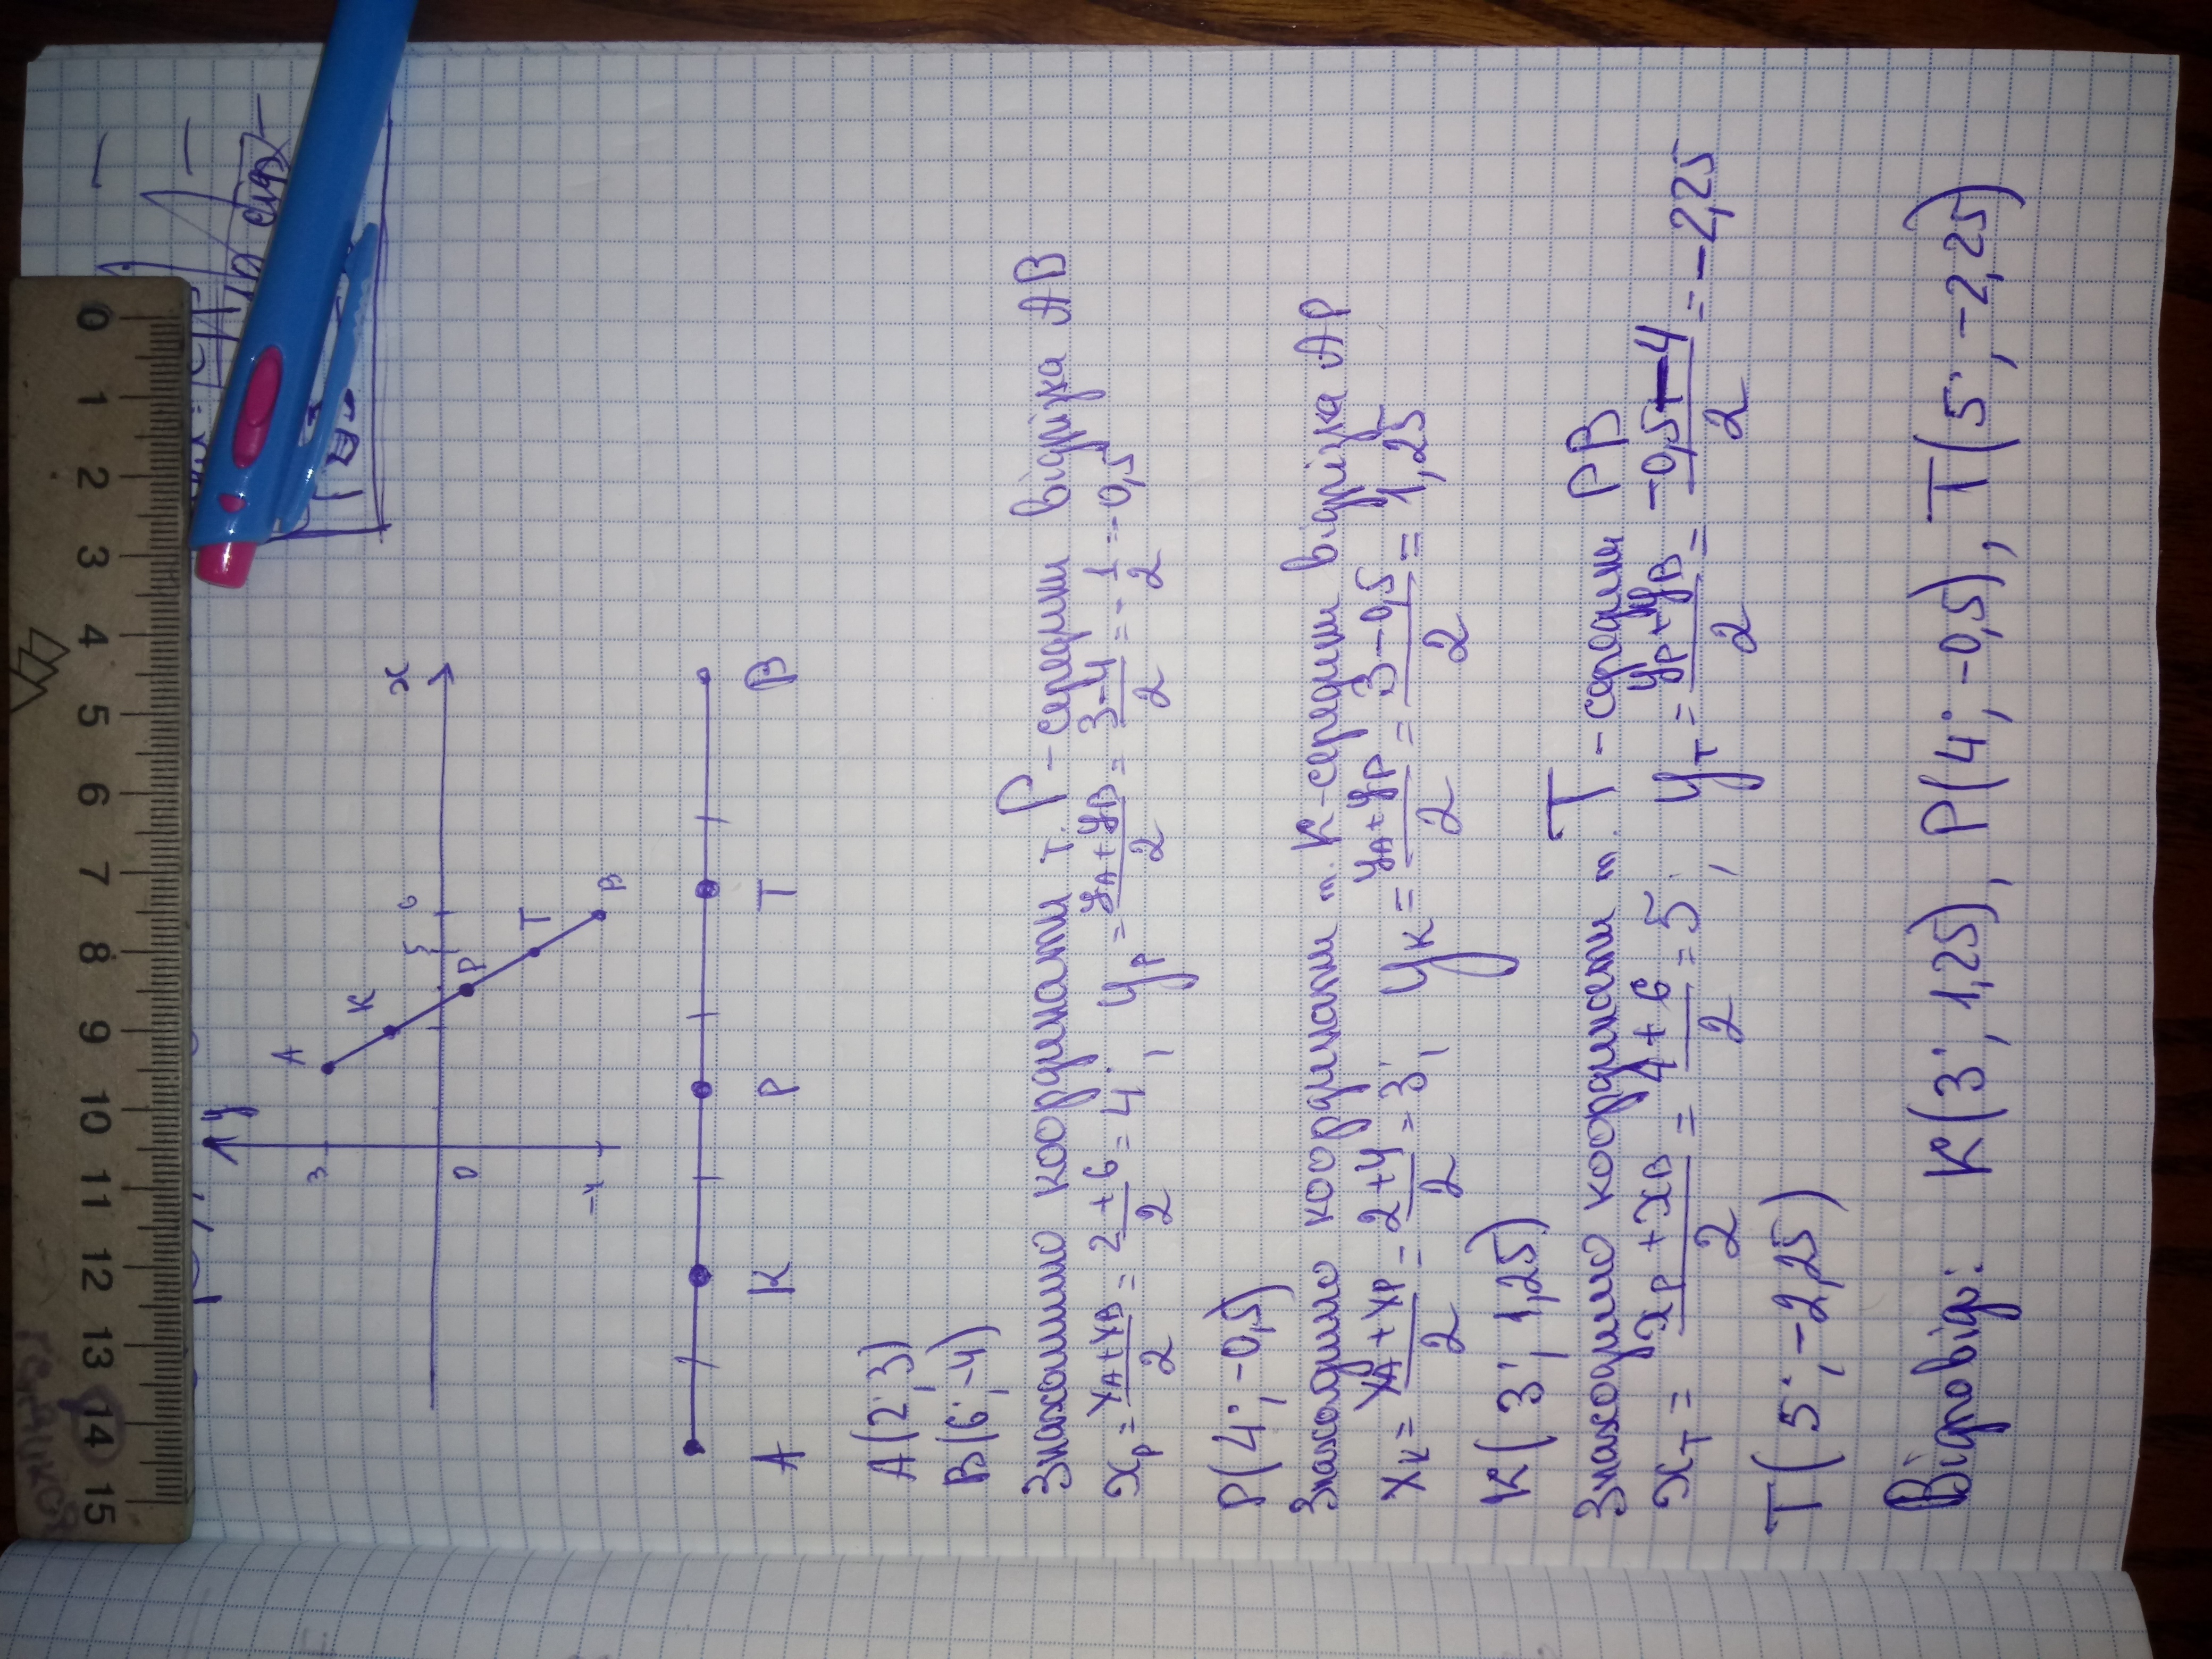 0 1 2 3 4 5 6 7 8 9 10 11 12 13 14 15
y
x
3
0
5
6
-4
A
K
P
T
B
A K P T B
A(2; 3)
B(6; -4)
Знаходимо координати т. P - середини відрізка AB
xP = xA + xB / 2 = 2 + 6 / 2 = 4; yP = yA + yB / 2 = 3 - 4 / 2 = - 1 / 2 = -0,5
P(4; -0,5)
Знаходимо координати т. K - середини відрізка AP
xK = xA + xP / 2 = 2 + 4 / 2 = 3; yK = yA + yP / 2 = 3 - 0,5 / 2 = 1,25
K(3; 1,25)
Знаходимо координати т. T - середини PB
xT = xP + xB / 2 = 4 + 6 / 2 = 5; yT = yP + yB / 2 = -0,5 - 4 / 2 = -2,25
T(5; -2,25)
Відповідь: K(3; 1,25), P(4; -0,5), T(5; -2,25)